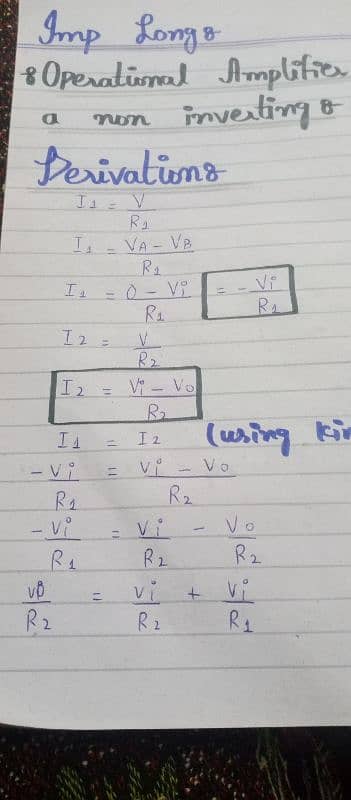 Imp Long :-
: Operational Amplifier
a non inverting :-
Derivation :-
I1 = V/R1
I1 = VA - VB/R1
I1 = 0 - Vi/R1 = - Vi/R1
I2 = V/R2
I2 = Vi - Vo/R2
I1 = I2 (using
-Vi/R1 = Vi - Vo/R2
-Vi/R1 = Vi/R2 - Vo/R2
/R2 = Vi/R2 + Vi/R1